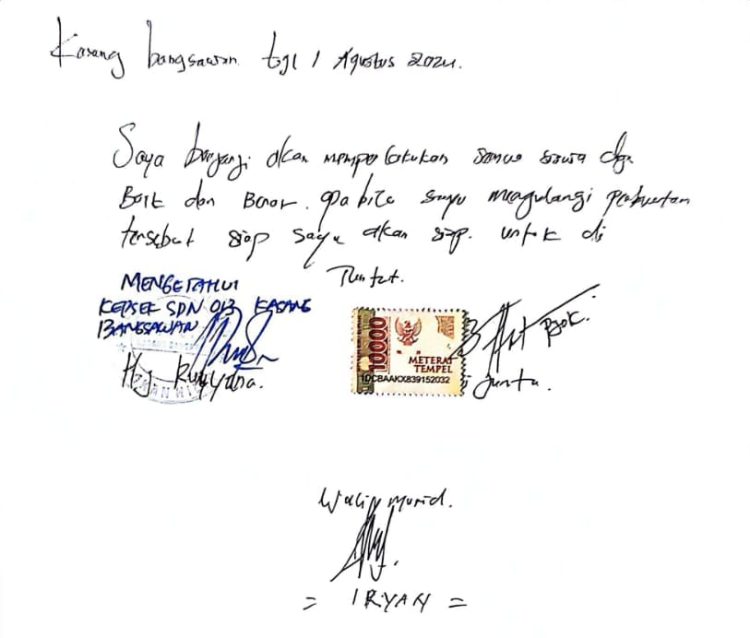 Kasang bangsawan tgl 1 Agustus 2024.
Saya berjanji akan memperlakukan semua siswa dgn
Baik dan Benar. apabila saya mengulangi perbuatan
tersebut siap saya akan siap. untuk di
Tuntut.
MENGETAHUI
KEPSEK SDN 013 KASANG
BANGSAWAN
Hj
10000
METERAI
TEMPEL
10CBAAKX839152032
Wali murid.
= IRYAN =